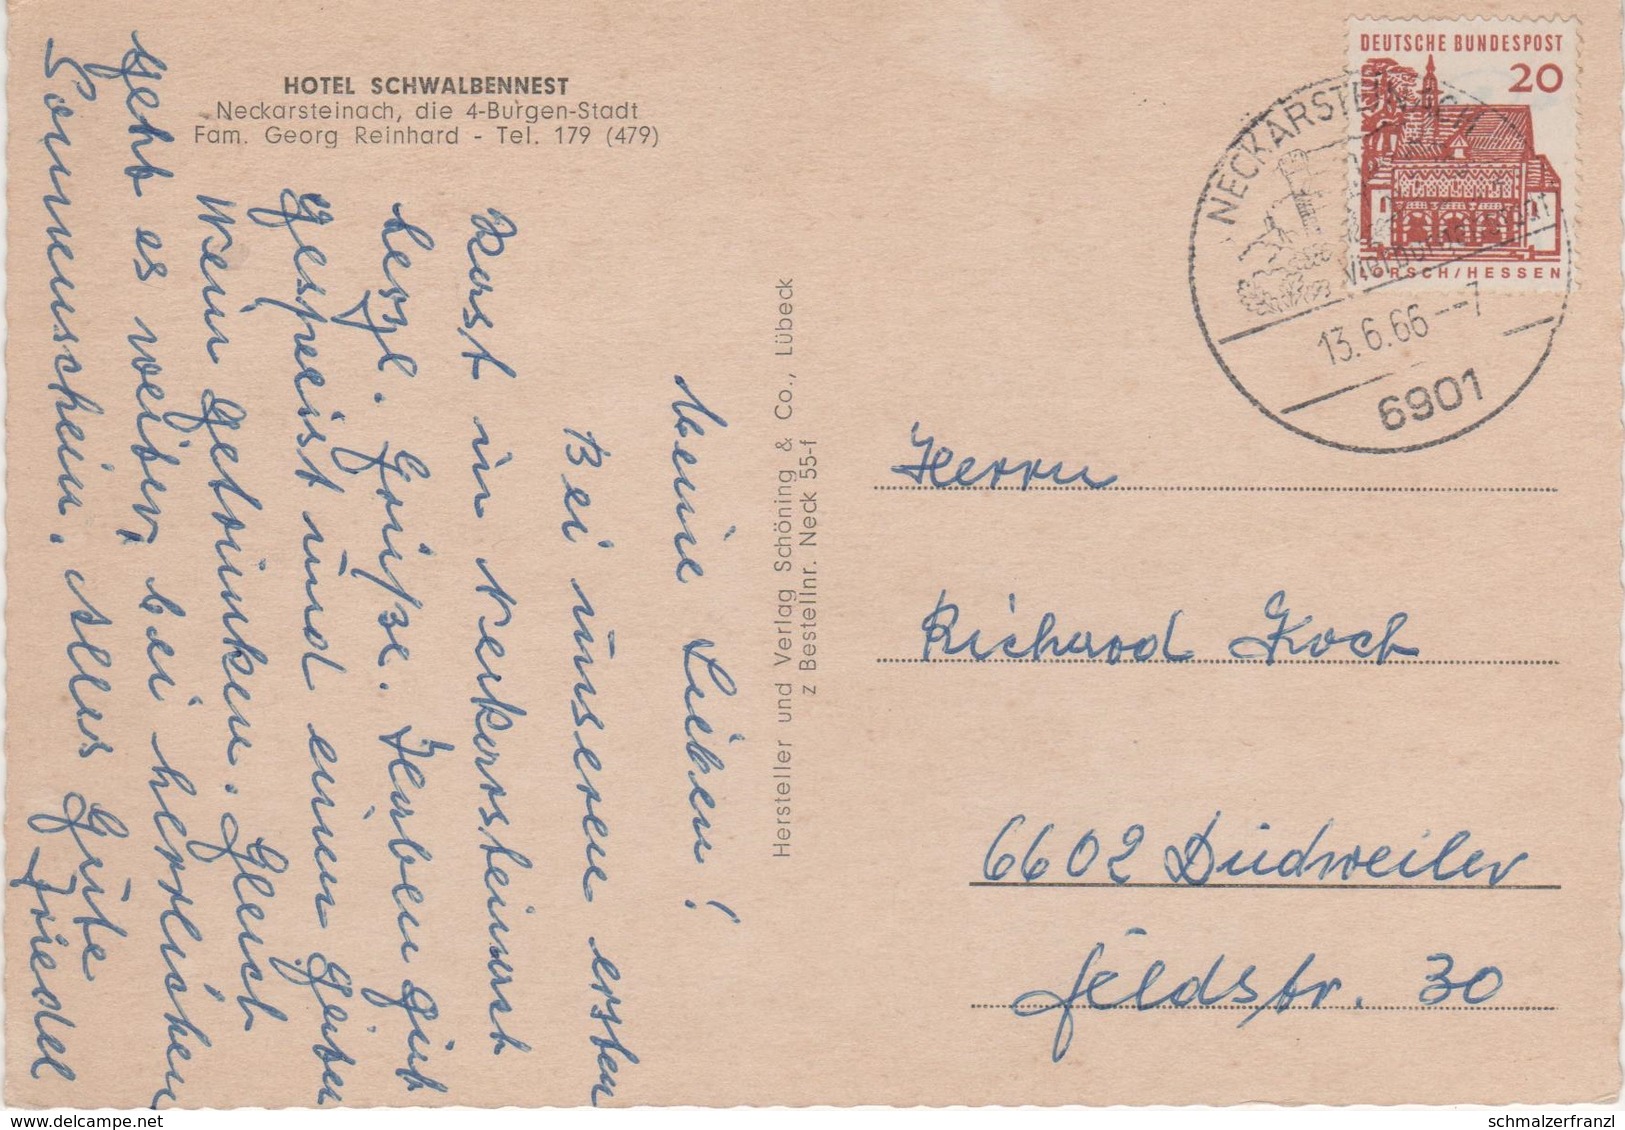 HOTEL SCHWALBENNEST
Neckarsteinach, die 4-Burgen-Stadt
Fam. Georg Reinhard - Tel. 179 (479)
Meine Lieben!
Bei unseren ersten
Rast in Neckarsteinach
herzl. Grüße. Haben gut
gespeist und einen guten
Wein getrunken. Gleich
geht es weiter, bei herrlichen
Sonnenschein. Alles Gute
Friedel
Hersteller und Verlag Schöning & Co., Lübeck
z Bestellnr. Neck 55-f
DEUTSCHE BUNDESPOST
20
LORSCH/HESSEN
NECKARSTEINACH
Vierburgenstadt
13.6.66--7
6901
Herrn
Richard Koch
6602 Dudweiler
Feldstr. 30
schmalzerfranzl